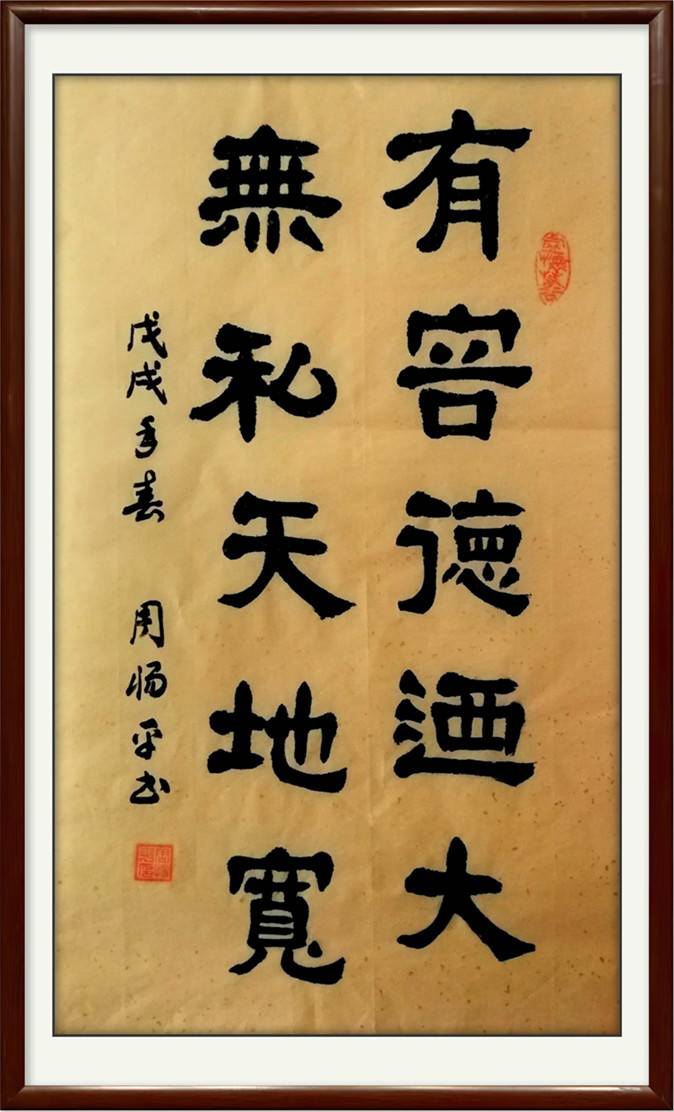 有容德迺大
無私天地寬
戊戌年春 周惕平书